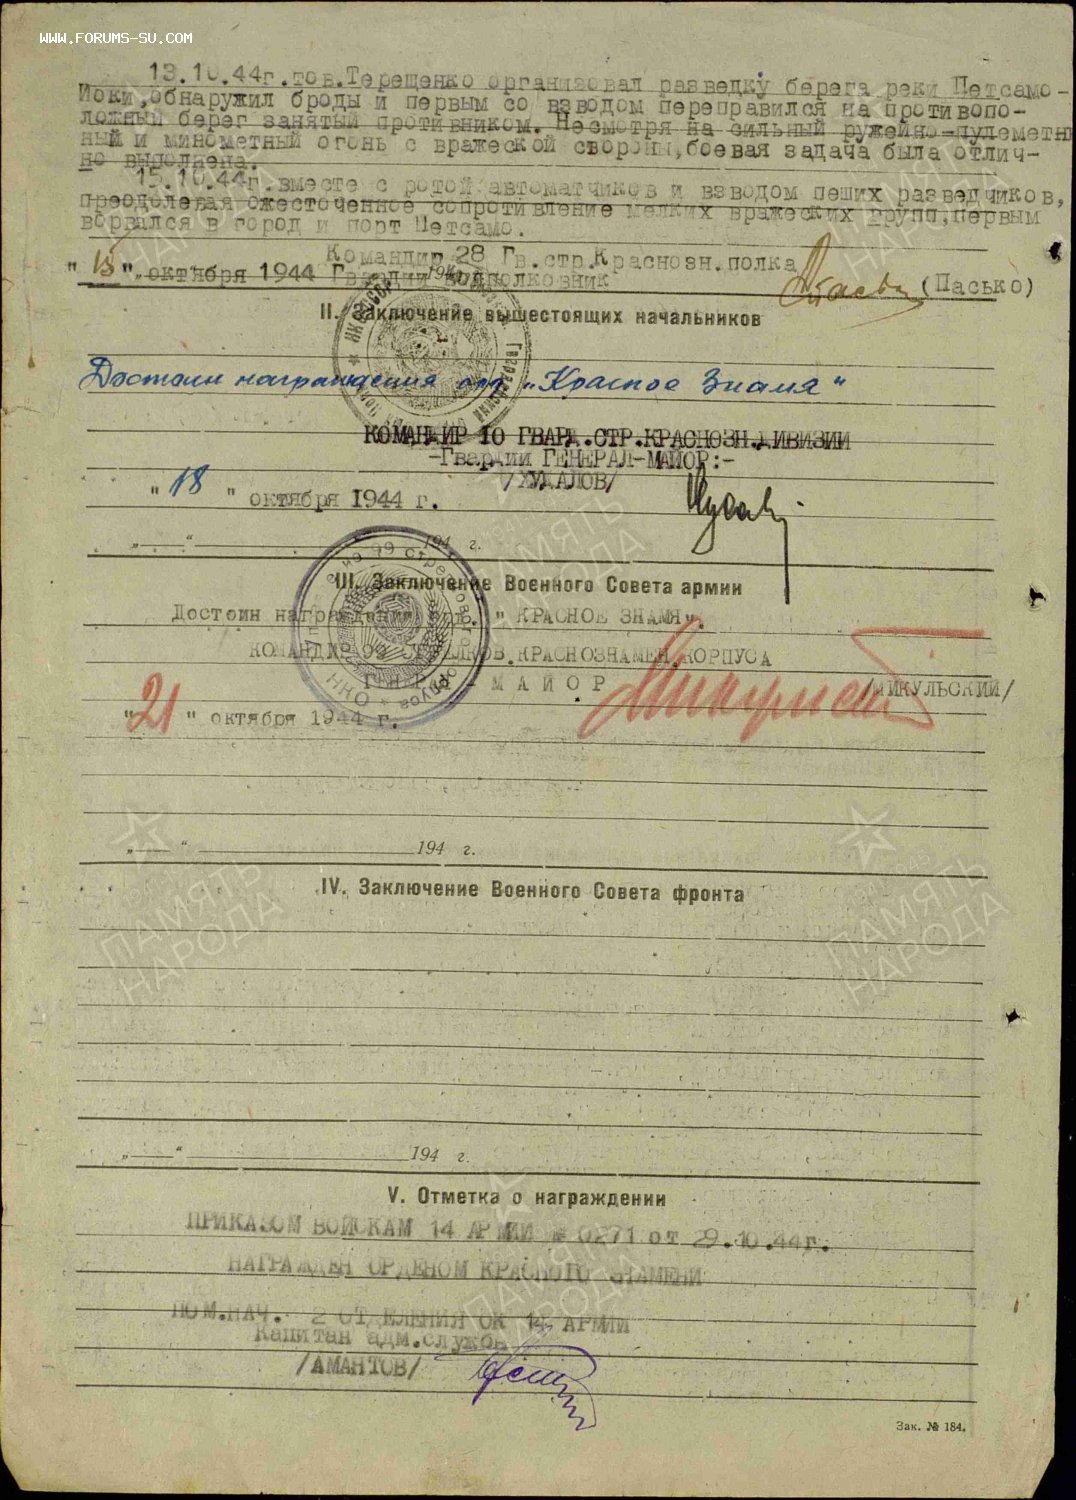 WWW.FORUMS-SU.COM
13.10.44г.тов.Терещенко организовал разведку берега реки Петсамо-
Йоки,обнаружил броды и первым со взводом переправился на противопо-
ложный берег занятый противником. Несмотря на сильный ружейно-пулеметн
ный и минометный огонь с вражеской свороны,боевая задача была отлич-
но выполнена.
15.10.44г.вместе с ротой автоматчиков и взводом пеших разведчиков,
преодолевая ожесточенное сопротивление мелких вражеских групп,первым
ворвался в город и порт Петсамо.
Командир 28 Гв.стр.Краснозн.полка
"15" октября 1944 Гвардии подполковник (Пасько)
II. Заключение вышестоящих начальников
Достоин награждения орд. „Красное Знамя"
КОМАНДИР 10 ГВАРД.СТР.КРАСНОЗН.ДИВИЗИИ
-Гвардии ГЕНЕРАЛ-МАЙОР:-
/ХУДАЛОВ/
"18" октября 1944 г.
„ “ 194 г.
III. Заключение Военного Совета армии
Достоин награждения орд. " КРАСНОЕ ЗНАМЯ".
КОМАНДИР 99 СТРЕЛКОВ.КРАСНОЗНАМЕН.КОРПУСА
- МАЙОР /МИКУЛЬСКИЙ/
"21" октября 1944 г.
„ “ 194 г.
IV. Заключение Военного Совета фронта
„ “ 194 г.
V. Отметка о награждении
ПРИКАЗОМ ВОЙСКАМ 14 АРМИИ № 0271 от 29.10.44г.
НАГРАЖДЕН ОРДЕНОМ КРАСНОГО ЗНАМЕНИ
ПОМ.НАЧ. 2 ОТДЕЛЕНИЯ ОК 14 АРМИИ
Капитан адм.службы
/АМАНТОВ/
Зак. № 184.
ПАМЯТЬ НАРОДА